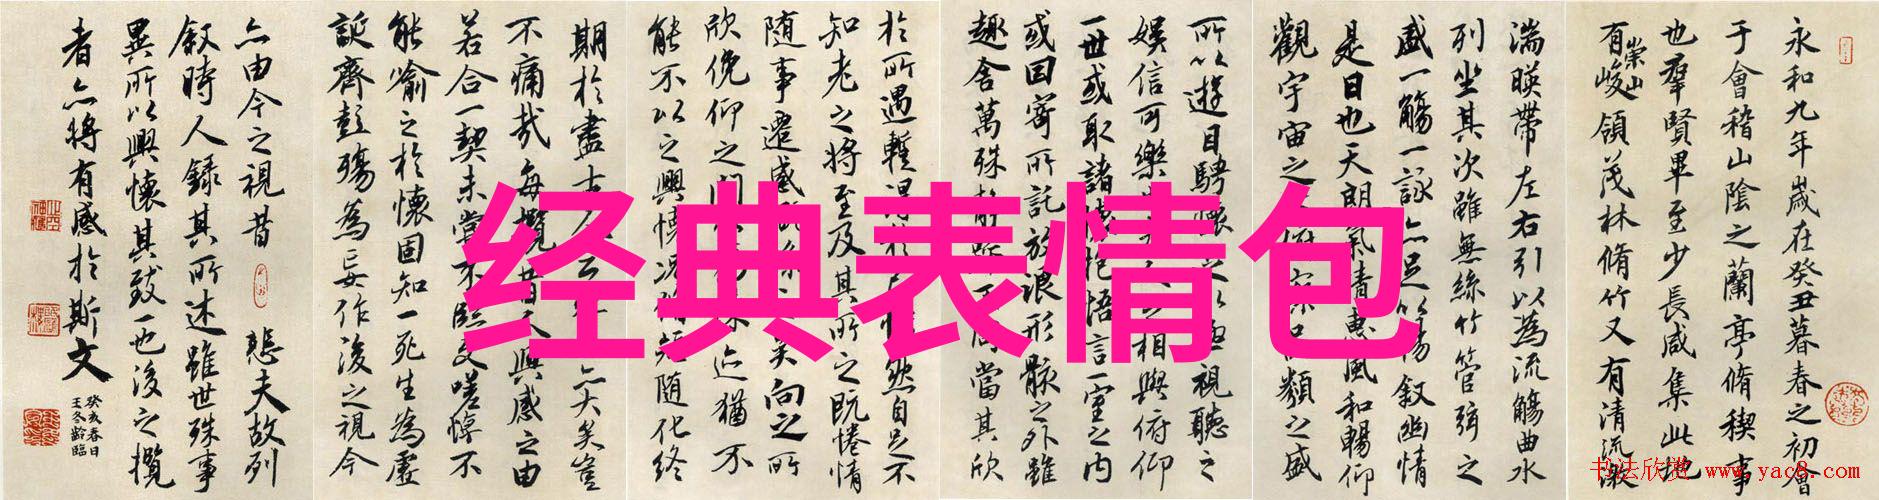 永和九年歲在癸丑暮春之初會
于會稽山陰之蘭亭脩稧事
也羣賢畢至少長咸集此地
有崇山峻領茂林脩竹又有清流激
湍暎帶左右引以為流觴曲水
列坐其次雖無絲竹管弦之
盛一觴一詠亦足以暢叙幽情
是日也天朗氣清惠風和暢仰
觀宇宙之俯察品類之盛
所以遊目騁懷足以極視聽之
娛信可樂也人之相與俯仰
一世或取諸懷抱悟言一室之內
或因寄所託放浪形骸之外雖
趣舍萬殊靜躁不同當其欣
於所遇蹔得於然自足不
知老之將至及其所之既惓情
隨事遷感矣向之所
欣俛仰之閒陳迹猶不
能不以之興懷況脩短隨化終
期於盡古人云亦大矣豈
不痛哉每攬昔人興感之由
若合一契未嘗不臨文嗟悼不
能喻之於懷固知一死生為虛
誕齊彭殤為妄作後之視今
亦由今之視昔 悲夫故列
敘時人錄其所述雖世殊事
異所以興懷其致一也後之攬
者亦將有感於斯文
癸亥春日
王冬齡臨
经典表情包
书法欣赏 www.yac8.com